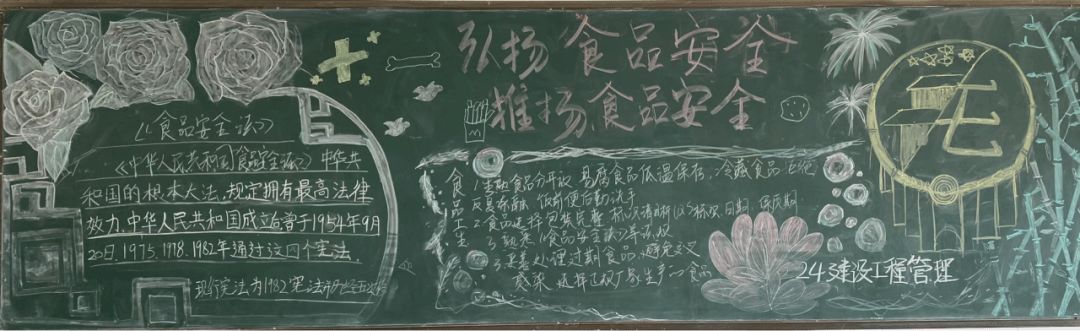 弘扬 食品安全
推扬食品安全
《食品安全法》
《中华人民共和国食品安全法》中华共
和国的根本大法,规定拥有最高法律
效力.中华人民共和国成立后曾于1954年9月
20日.1975.1978.1982年通过这四个宪法,
现行宪法为1982宪法
食品卫生
1.生熟食品分开放 易腐食品低温保存,冷藏食品
反复冻融 饭前便后勤洗手
2.食品选择包装完整 标识清晰 标识,日期,保质期
3.熟悉《食品安全法》等
妥善处理过期食品,避免交叉
感染 选择正规厂家生产 食品
24建设工程管理